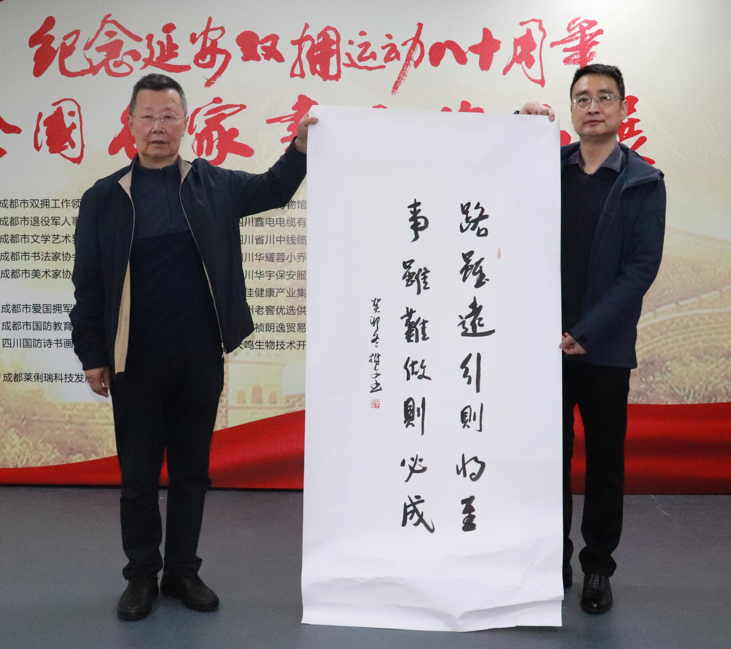 纪念延安双拥运动八十周年
全国名家書展
成都市双拥工作领
成都市退役军人事
成都市文学艺术界
成都市书法家协会
成都市美术家协
成都市爱国拥军
成都市国防教育
四川国防诗书画
成都莱俐瑞科技发展
物馆
四川鑫电电缆有
四川省川中线缆
四川华耀蓉小乔
四川华宇保安服
佳健康产业集
州老窖优选供
祯朗逸贸易
天鸣生物技术开
路雖遠行則将至
事雖難做則必成
癸卯冬